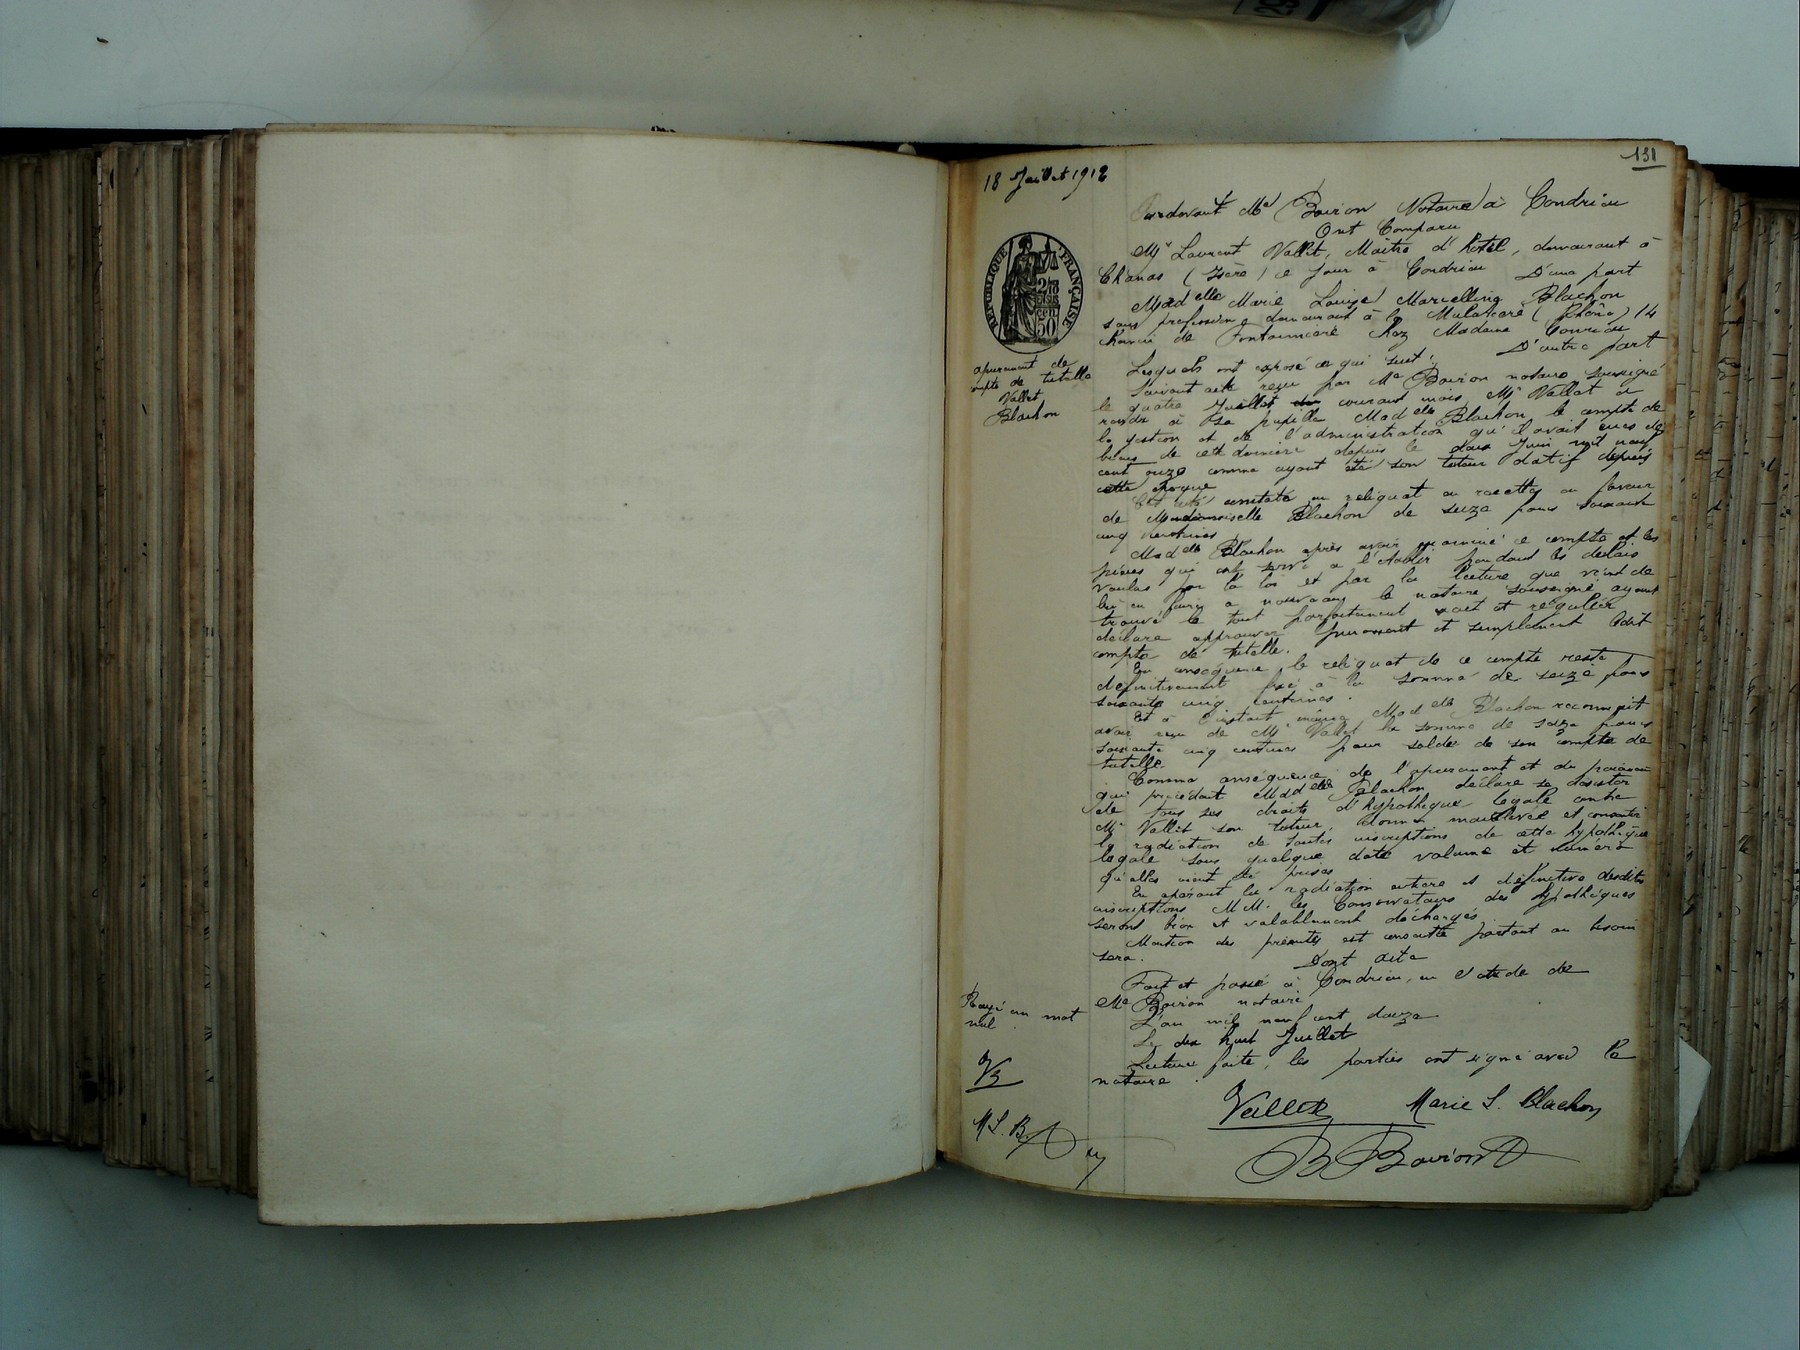 131
18 Juillet 1912
RÉPUBLIQUE FRANÇAISE
2/10
EN SUS
50 cen.
apurement de
compte de tutelle
Vallet
Blachon
Pardevant Me Boiron Notaire à Condrieu
Ont Comparu
Mr Laurent Vallet, Maitre d'hotel, demeurant à
Chanas (Isère) ce jour à Condrieu D'une part
Madelle Marie Louise Marcelline Blachon
sans profession demeurant à la Mulatiere (Rhône) 14
chemin de Fontanieres chez Madame
D'autre part
Lesquels ont exposé ce qui suit :
Suivant acte reçu par Me Boiron notaire soussigné
le quatre Juillet courant mois, Mr Vallet a
rendu à sa pupille Madelle Blachon le compte de
la gestion et de l'administration qu'il avait eues des
biens de cette derniere depuis le deux Juin mil neuf
cent onze comme ayant été son tuteur datif depuis
cette époque
constaté un reliquat en recettes en faveur
de Mademoiselle Blachon de seize francs soixante
cinq centimes
Madelle Blachon après avoir examiné ce compte et les
pièces qui ont servi a l'établir pendant les delais
voulus par la loi et par la lecture que vient de
lui en faire a nouveau le notaire soussigné, ayant
trouvé le tout parfaitement exact et regulier
déclare approuver purement et simplement ledit
compte de tutelle.
En conséquence, le reliquat de ce compte reste
definitivement fixé à la somme de seize francs
soixante cinq centimes.
Et à l'instant même Madelle Blachon reconnait
avoir reçu de Mr Vallet la somme de seize francs
soixante cinq centimes pour solde de son compte de
tutelle.
Comme conséquence de l'apurement et du paiement
qui précèdent Madelle Blachon déclare se désister
de tous ses droits d'hypothèque légale contre
Mr Vallet son tuteur, donne mainlevée et consent
la radiation de toutes inscriptions de cette hypothèque
legale sous quelque date volume et numéro
qu'elles aient été prises
En opérant la radiation entiere et définitive desdites
inscriptions MM. les Conservateurs des hypothèques
seront bien et valablement déchargés
Mention des présentes est consentie partout ou besoin
sera.
Dont acte
Fait et passé à Condrieu, en l'etude de
Me Boiron notaire
L'an mil neuf cent douze
Le dix huit Juillet
Lecture faite, les parties ont signé avec le
notaire.
Rayé un mot
nul
M L. B.
Vallet
Marie L. Blachon
B Boiron